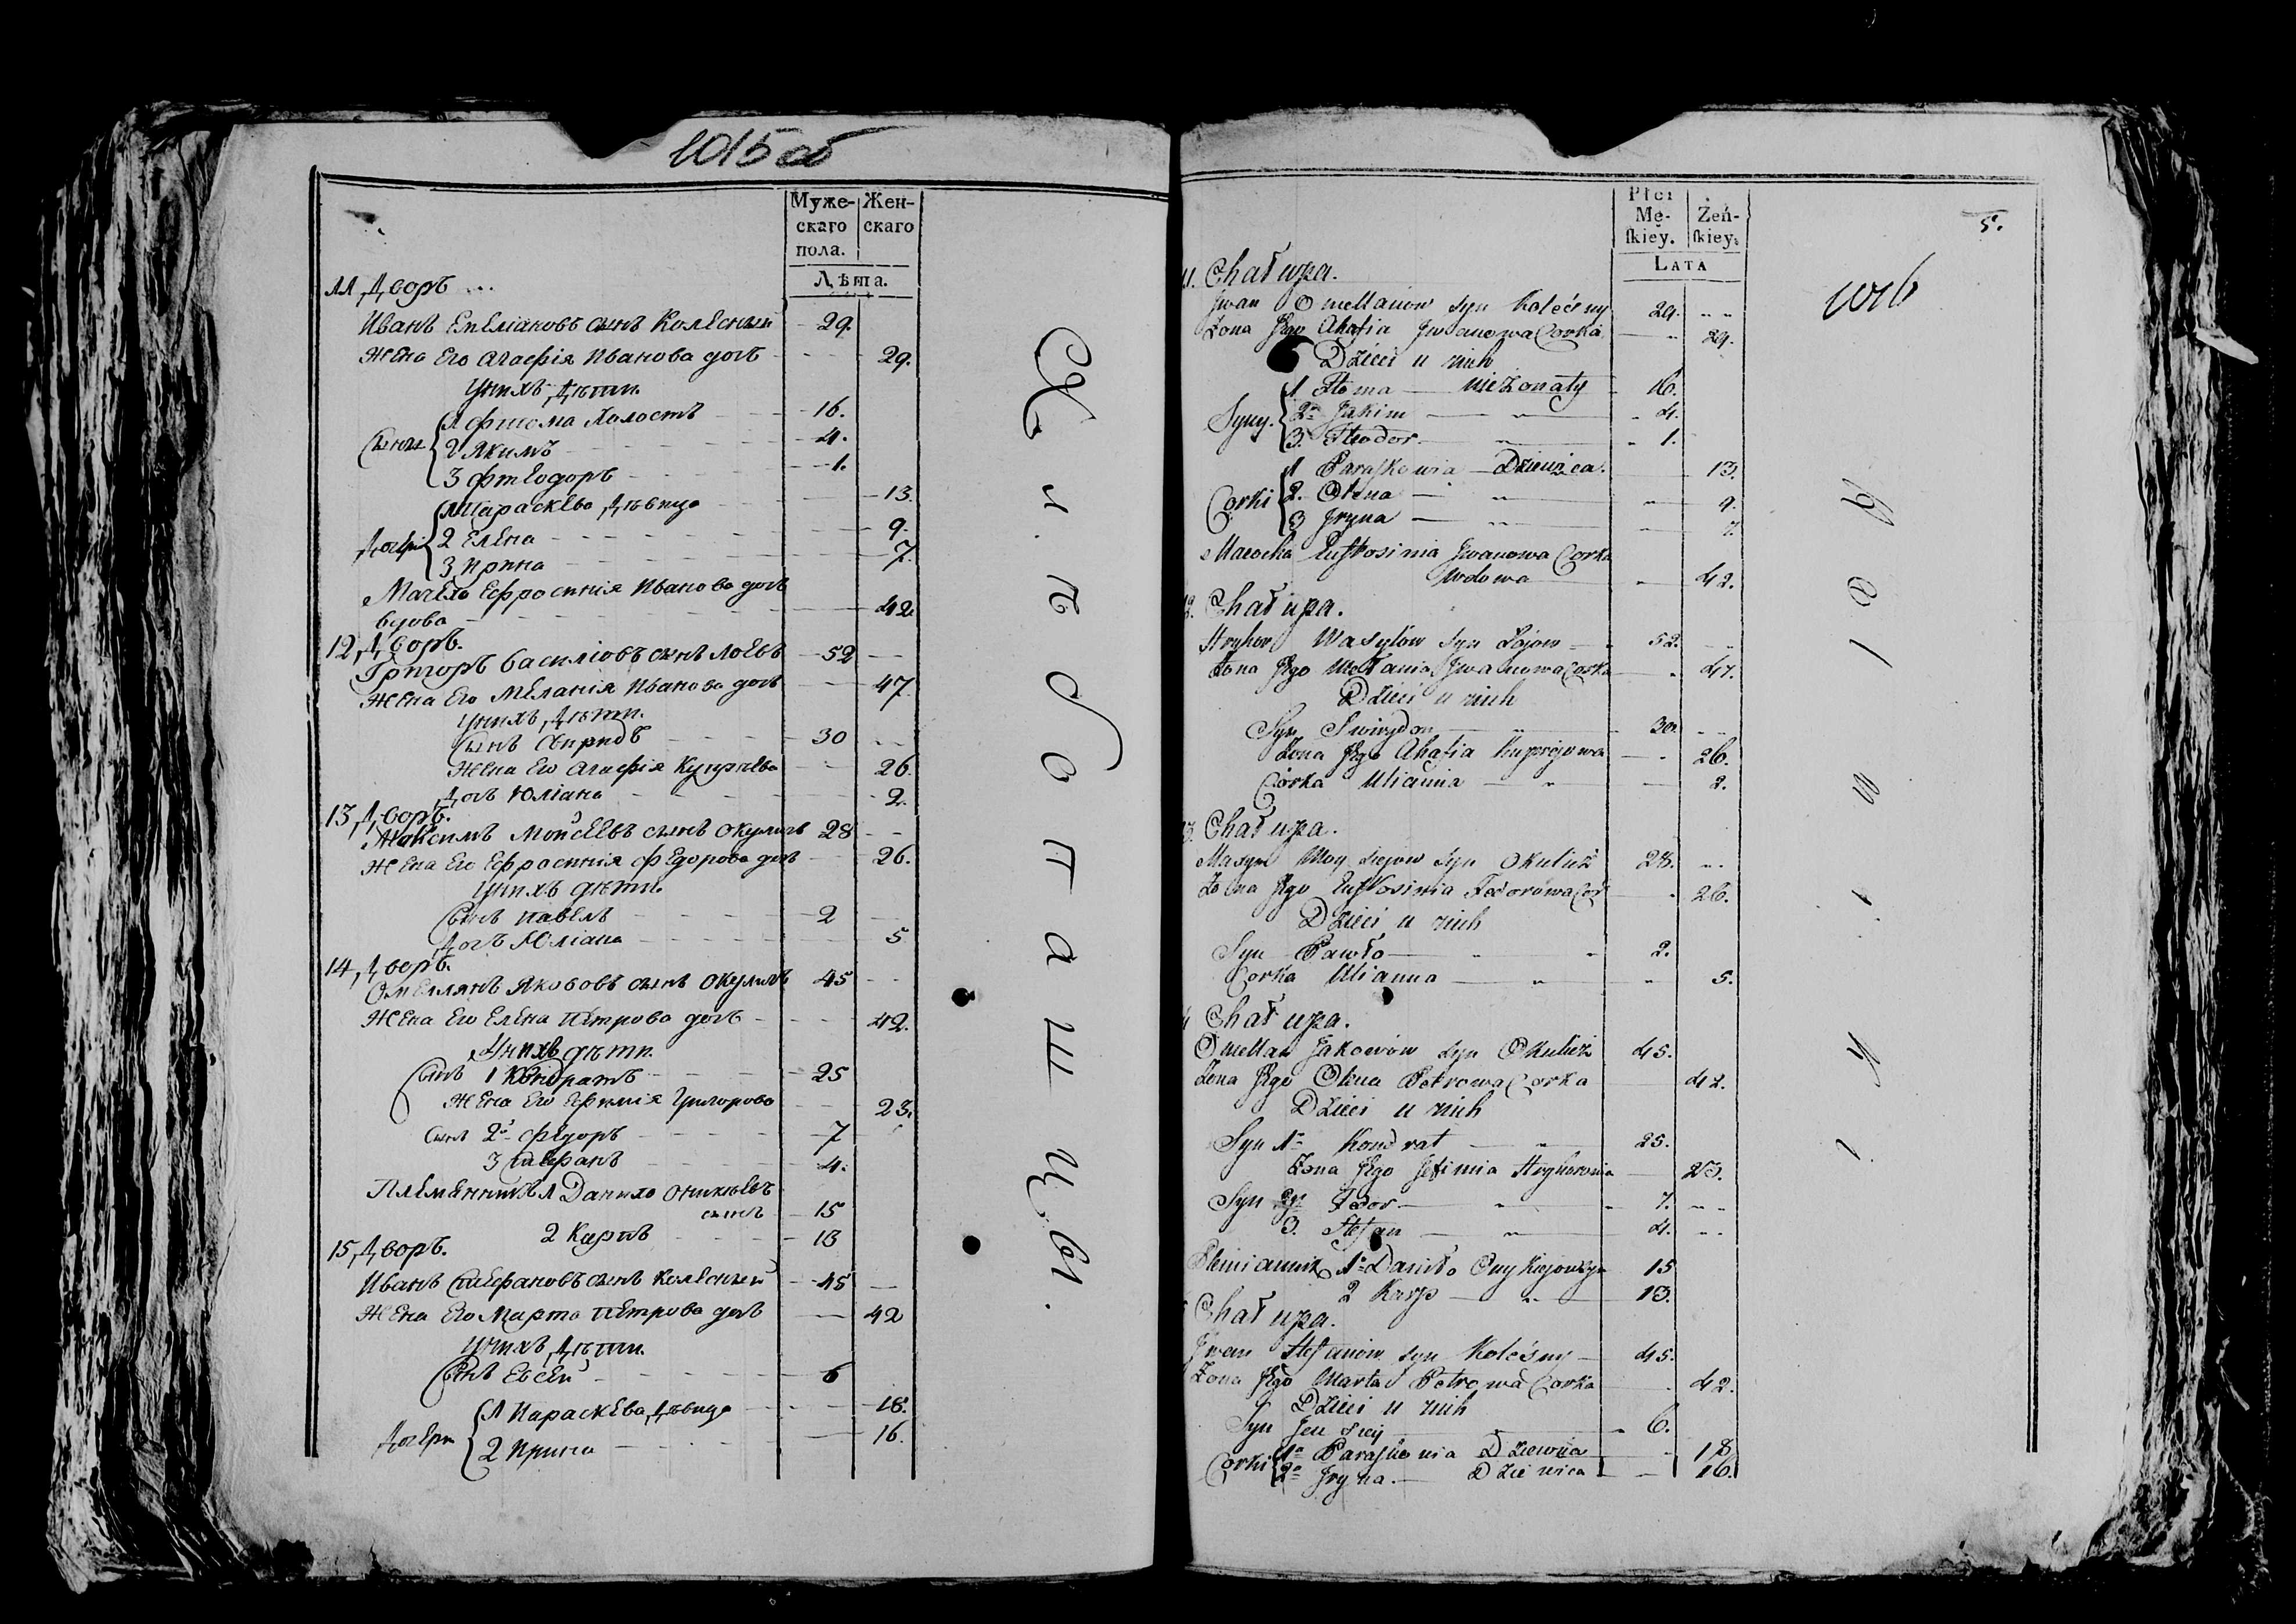 1015 об
Муже-
скаго
пола.
Жен-
скаго
Лѣта.
11 Дворъ
Иванъ Емеліановъ сынъ Колесный 29.
Жена Его Агафія Иванова дочь 29.
У нихъ Дѣти
Сыны
1 Фтома Холостъ 16.
2 Якимъ 4.
3 Фтеодоръ 1.
Дочери
1 Параскева Дѣвица 13.
2 Елена 9.
3 Ирина 7.
Мачеха Ефросинія Иванова дочь
вдова 42
12 Дворъ.
Григоръ Василіовъ сынъ Лоевъ 52
Жена Его Меланія Иванова дочь 47
У нихъ Дѣти.
Сынъ Свиридъ 30
Жена Его Агафія Купріева 26.
Дочь Юліана 2.
13 Дворъ.
Максимъ Мойсеевъ сынъ Окуличъ 28
Жена Его Ефросинія Федорова дочь 26.
У нихъ дѣти.
Сынъ Павелъ 2
Дочь Юліана 5
14 Дворъ.
Омеллянъ Якововъ сынъ Окуличъ 45
Жена Его Елена Петрова дочь 42.
У нихъ дѣти.
Сынъ 1 Кондратъ 25
Жена Его Ефимія Григорова 23.
Сынъ 2й Федоръ 7
3 Стефанъ 4.
Племянникъ 1 Данило Оникіевъ
сынъ 15
2 Карпъ 13
15 Дворъ.
Иванъ Стефановъ сынъ Колесный 45
Жена Его Марта Петрова дочь 42
У нихъ Дѣти.
Сынъ Евсей 6
Дочери
1 Параскева Дѣвица 18.
2 Ирина 16.
Płci
Mę-
skiey.
Żeń-
skiey.
LATA
5.
1016
11. Chałupa.
Jwan Omellanow syn Koleśny 29.
Żona Jego Ahafia Jwanowa Corka 29.
Dzieci u nich
Syny.
1 Homa nieżonaty 16.
2o Jakim 4.
3. Theodor 1.
Corki
1 Paraskowia Dziewica. 13.
2. Olena 9.
3 Jryna 7.
Macocha Eufrosinia Jwanowa Corka
Wdowa 42.
12. Chałupa.
Hryhor Wasylow syn Łojow 52.
Żona Jego Mełania Jwanowa Corka 47.
Dzieci u nich
Syn Swirydon 30.
Żona Jego Ahafia Kupryjowa 26.
Corka Ulianna 2.
13. Chałupa.
Maxym Moysiejow syn Okulicz 28.
Żona Jego Eufrosinia Fedorowa Cor 26.
Dzieci u nich
Syn Pawło 2.
Corka Ulianna 5.
Chałupa.
Omellan Jakowow syn Okulicz 45.
Żona Jego Olena Petrowa Corka 42.
Dzieci u nich
Syn 1o Kondrat 25.
Żona Jego Jefimia Hryhorowa 23.
Syn 2gi Fedor 7.
3. Stefan 4.
Plemiannik 1o Daniło Onykiejow syn 15
2 Karp 13.
Chałupa.
Jwan Stefanow syn Koleśny 45.
Żona Jego Marta Petrowa Corka 42.
Dzieci u nich
Syn Jewsiey 6.
Corki
1a Paraskowia Dziewica 18
2a Jryna. Dziewica 16.